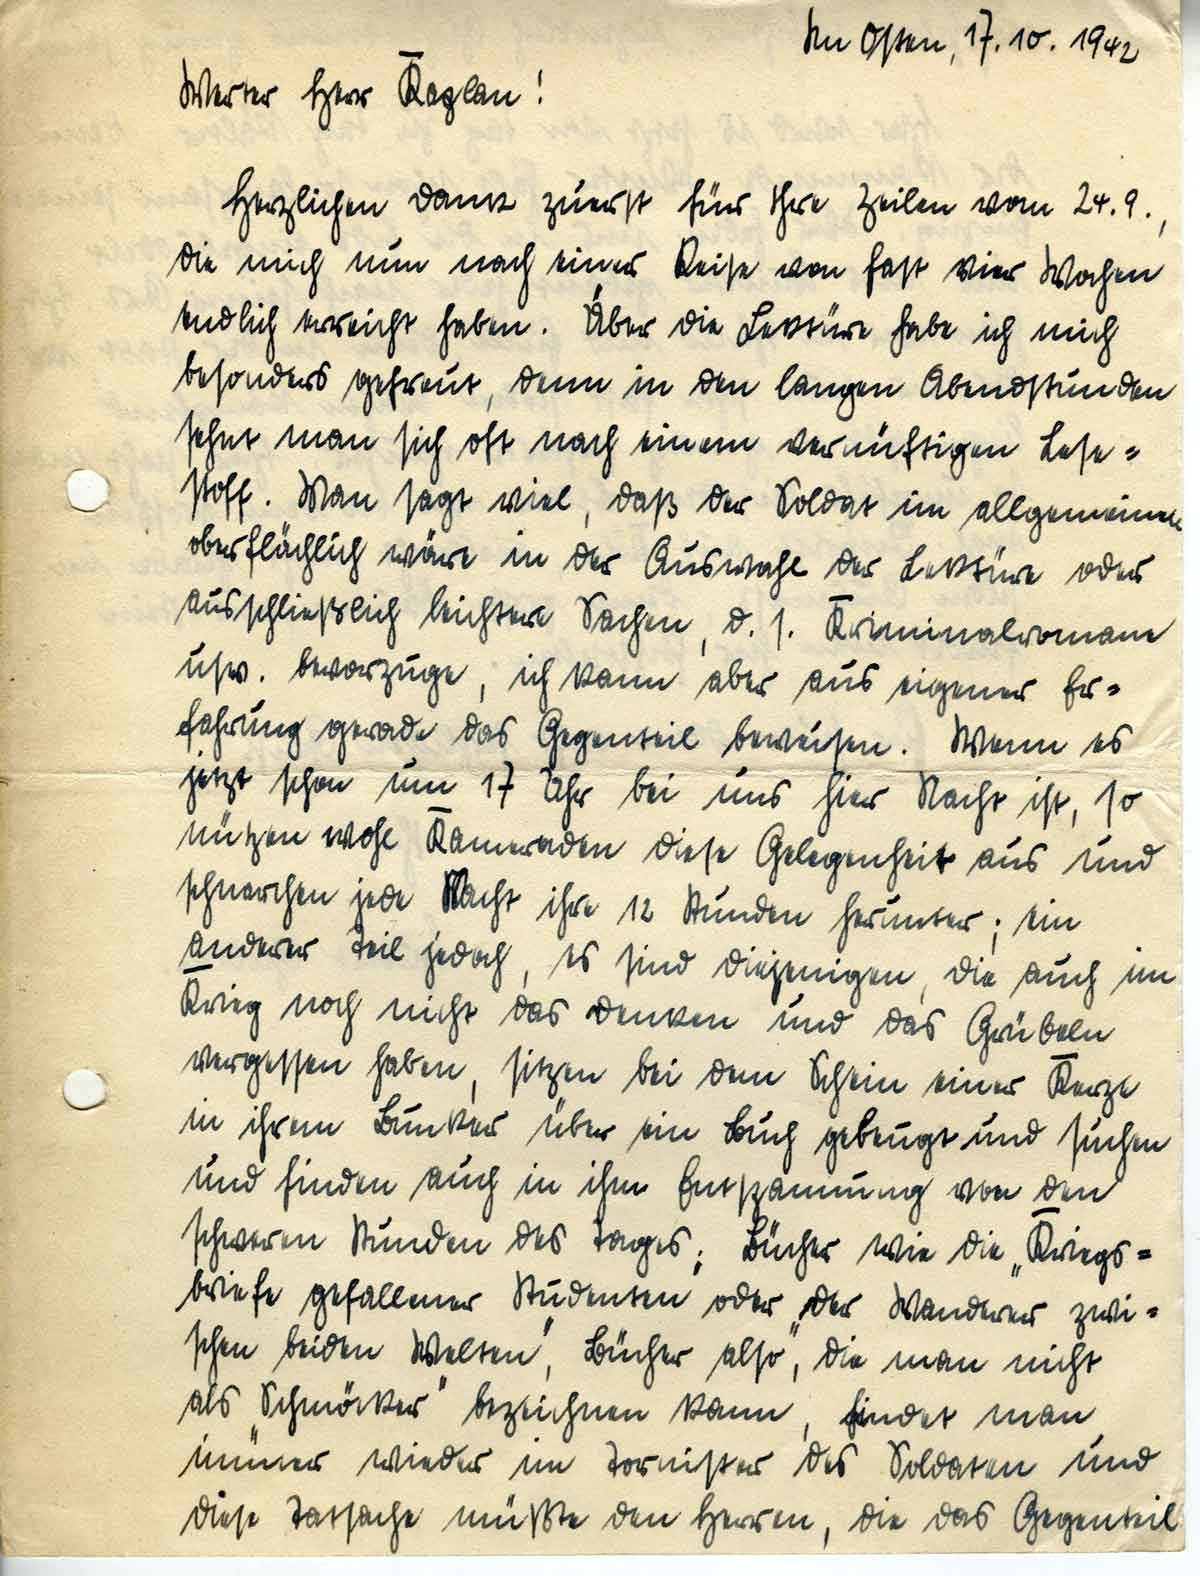 Im Osten, 17.10.1942
Werter Herr Kaplan!
Herzlichen Dank zuerst für Ihre Zeilen vom 24.9.,
die mich nun nach einer Reise von fast vier Wochen
endlich erreicht haben. Über die Lektüre habe ich mich
besonders gefreut, denn in den langen Abendstunden
sehnt man sich oft nach einem vernüftigen Lese=
stoff. Man sagt viel, daß der Soldat im allgemeinen
oberflächlich wäre in der Auswahl der Lektüre oder
ausschließlich leichtere Sachen, d. s. Kriminalromane
usw. bevorzuge, ich kann aber aus eigener Er=
fahrung gerade das Gegenteil beweisen. Wenn es
jetzt schon um 17 Uhr bei uns hier Nacht ist, so
nützen wohl Kameraden diese Gelegenheit aus und
schnarchen jede Nacht ihre 12 Stunden herunter; ein
anderer Teil jedoch, es sind diejenigen, die auch im
Krieg noch nicht das Denken und das Grübeln
vergessen haben, sitzen bei dem Schein einer Kerze
in ihrem Bunker über ein Buch gebeugt und suchen
und finden auch in ihm Entspannung von den
schweren Stunden des Tages. Bücher wie die „Kriegs=
briefe gefallener Studenten" oder „der Wanderer zwi=
schen beiden Welten", Bücher also, die man nicht
als „Schmöker" bezeichnen kann, findet man
immer wieder im Tornister des Soldaten und
diese Tatsache müßte den Herren, die das Gegenteil